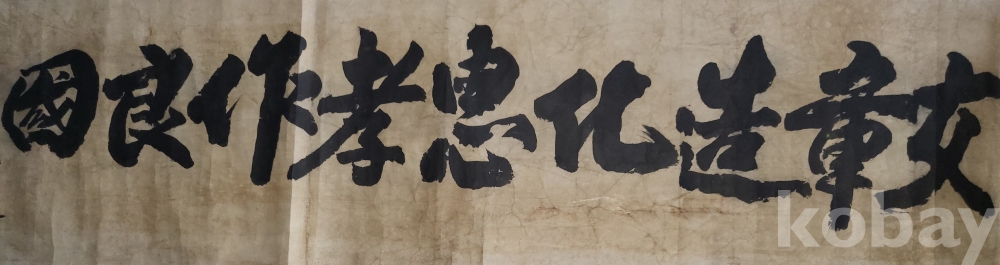 文章造化惠孝作良國
kobay